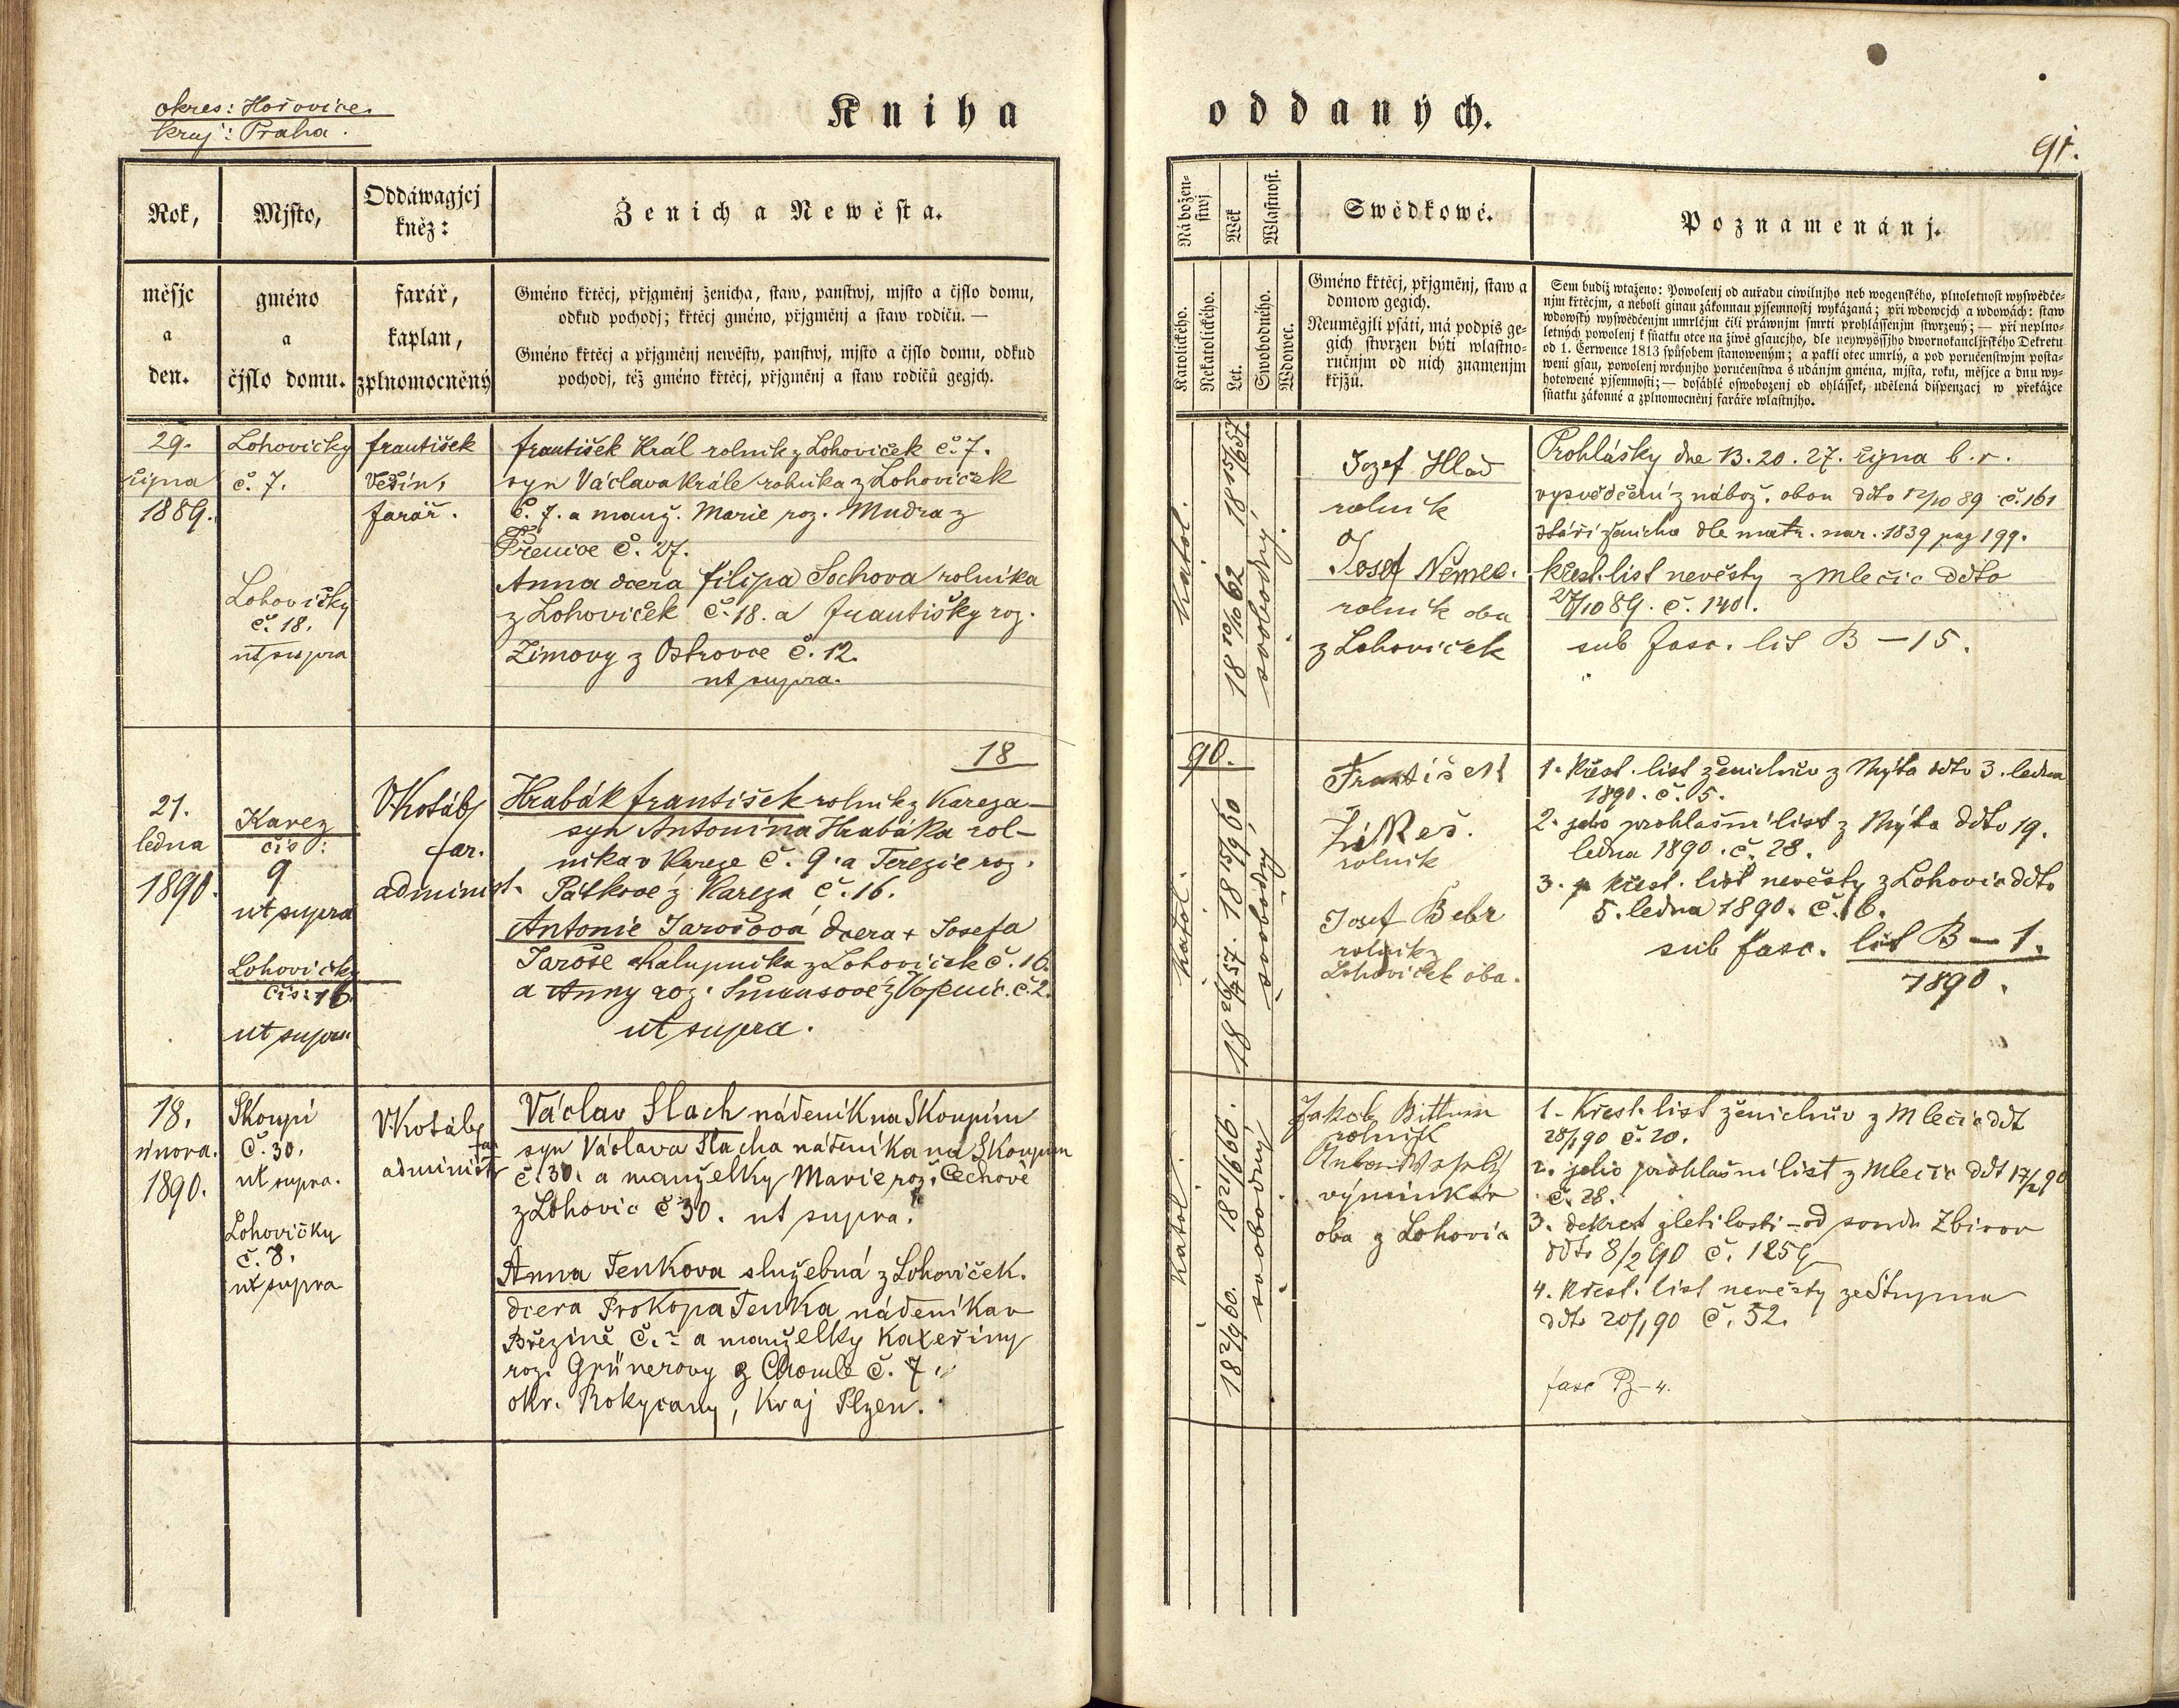 okres: Hořovice.
kraj: Praha.
Kniha oddaných.
91.
Rok,
měsjc
a
den.
Mjsto,
gméno
a
čjslo domu.
Oddáwagjcj
kněz:
farář,
kaplan,
zplnomocněný
Ženich a Newěsta.
Gméno křtěcj, přjgměnj ženicha, staw, panstwj, mjsto a čjslo domu,
odkud pochodj; křtěcj gméno, přjgměnj a staw rodičů. —
Gméno křtěcj a přjgměnj newěsty, panstwj, mjsto a čjslo domu, odkud
pochodj, též gméno křtěcj, přjgměnj a staw rodičů gegjch.
Nábožen-
stwj
Katolického.
Nekatolického.
Wěk
Let.
Wlastnost.
Swobodného.
Wdowec.
Swědkowé.
Gméno křtěcj, přjgměnj, staw a
domow gegich.
Neumělgjli psáti, má podpis ge-
gich stwrzen býti wlastno-
ručnjm od nich znamenjm
křjžů.
Poznamenánj.
Sem budiž wtaženo: Powolenj od auřadu ciwilnjho neb wogenského, plnoletnost wyswědče-
njm křtěcjm, a neboli ginau zákonnau pjsemnostj wykázaná; při wdowcjch a wdowách: staw
wdowský wyswědčenjm umrlčjm čili práwnjm smrti prohlássenjm stwrzený; — při neplno-
letných powolenj k sňatku otce na žiwě gsaucjho, dle neywyššjho dwornokancljřského Dekretu
od 1. Čerwence 1813 spůsobem stanoweným; a pakli otec umrlý, a pod poručenstwjm posta-
weni gsau, powolenj wrchnjho poručenstwa s udánjm gména, mjsta, roku, měsjce a dnu wy-
hotowené pjsemnosti; — dosáhlé oswobozenj od ohlássek, udělená dispenzacj w překážce
sňatku zákonné a zplnomocněnj faráře wlastnjho.
29.
října
1889.
Lohovičky
č. 7.
Lohovičky
č. 18.
ut supra
František
Vešín,
farář.
František Král rolník z Lohoviček č. 7.
syn Václava Krále rolníka z Lohoviček
č. 7. a manž. Marie roz. Mudra z
č. 27.
Anna dcera Filipa Sochova rolníka
z Lohoviček č. 18. a Františky roz.
Zimovy z Ostrovce č. 12.
ut supra.
katol.
18 15/6 57
18 10/10 62
svobodný.
Jozef Hlad
rolník
Josef Němec.
rolník oba
z Lohoviček
Prohlášky dne 13. 20. 27. října b. r.
vysvědčení z nábož. obou ddto 12/10 89 č. 161
stáří ženicha dle matr. nar. 1839 pag 199.
křest. list nevěsty z Mlečic ddto
27/10 89. č. 140.
sub fasc. lit B — 15.
18 90.
21.
ledna
1890.
Karez
čís:
9
ut supra
Lohovičky
čís: 16
ut supra
V. Kotábs
far.
administ.
Hrabák František rolník z Kareza —
syn Antonína Hrabáka rol-
níka v Kareze č. 9. a Terezie roz.
Pátkové z Kareza č. 16.
Antonie Jarošová dcera + Josefa
Jaroše chalupníka z Lohoviček č. 16.
a Anny roz. č. 2.
ut supra.
katol.
18 57. 18 15/9 60
svobodný
František
Žikeš.
rolník
Josef Bebr
rolník z
Lohoviček oba.
1. Křest. list ženichův z Mýta ddto 3. ledna
1890. č. 5.
2. jeho prohlašní list z Mýta ddto 19.
ledna 1890. č. 28.
3. křest. list nevěsty z Lohovic ddto
5. ledna 1890. č. 6.
sub fasc. lit B — 1.
1890.
18.
února.
1890.
Skoupí
č. 30.
ut supra.
Lohovičky
č. 8.
ut supra
V. Kotábs
far
administ
Václav Slach nádeník na Skoupím
syn Václava Slacha nádeníka na Skoupím
č. 30. a manželky Marie roz. Čechové
z Lohovic č 30. ut supra.
Anna Tenkova služebná z Lohoviček.
dcera Prokopa Tenka nádeníka v
Březině č. ~ a manželky Kateřiny
roz. Grünerovy z Chomle č. 7.
okr. Rokycany, kraj Plzeň.
katol.
18 2/9 60. 18 21/6 66.
svobodný
Jakob Bittman
rolník
výminkář
oba z Lohovic
1. Křest. list ženichův z Mlečic ddt
28/1 90 č. 20.
2. jeho prohlašní list z Mlečic ddt 17/2 90
č. 28.
3. dekret zletilosti — od soudu Zbirov
ddto 8/2 90 č. 1259
4. křest. list nevěsty ze Stupna
ddto 20/1 90 č. 52.
fasc B — 4.